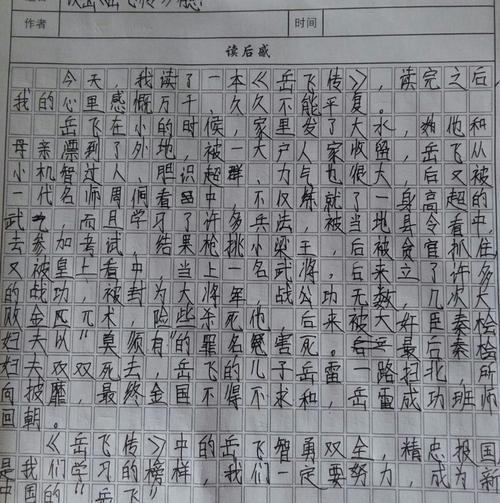 作者 时间
读后感
今天，我读了一本《岳飞传》，读完之后，
我的心里感慨万千，久久不能平复。
岳飞在小的时候，家里发了大水，他和
母亲漂到了外地，被一大户人家收留，岳飞从
小机智过人、胆识超群、力气也很大，后又被
一代名师周侗看中，不仅练就了一身高超的
武艺，而且学习了许多兵法，被当地县令看中，
去参加考试，结果枪挑小梁王，后被贪官抓住，
又被皇上看中，当上一名武将，后来立了许多
的战功，被封为大将军，战功无数，几次大
败金匹兀术，险些杀死他，后来被大奸臣秦桧
妇夫以"莫须有"的罪名害死。最后秦桧
妇夫双双死去，岳飞的儿子岳雷一路扫北，所
向披靡，最终金国不得不求和，岳雷成功班师
回朝。
《岳飞传》中的岳飞智勇双全，精忠报国，
是我们学习的榜样，我们一定要努力，成为新
中国的"岳飞"